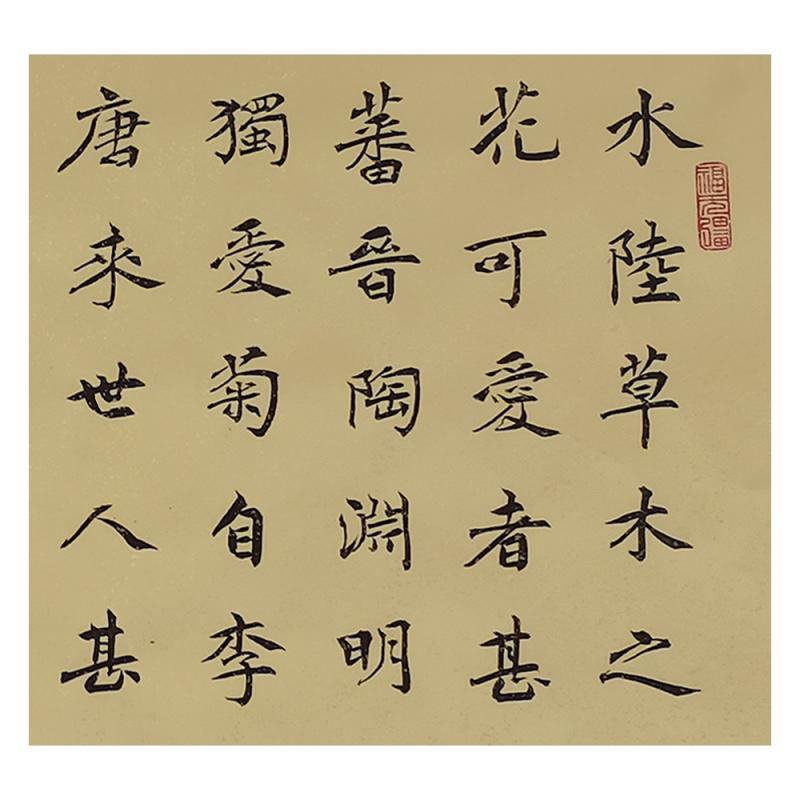 水陸草木之
花可愛者甚
蕃晉陶淵明
獨愛菊自李
唐來世人甚